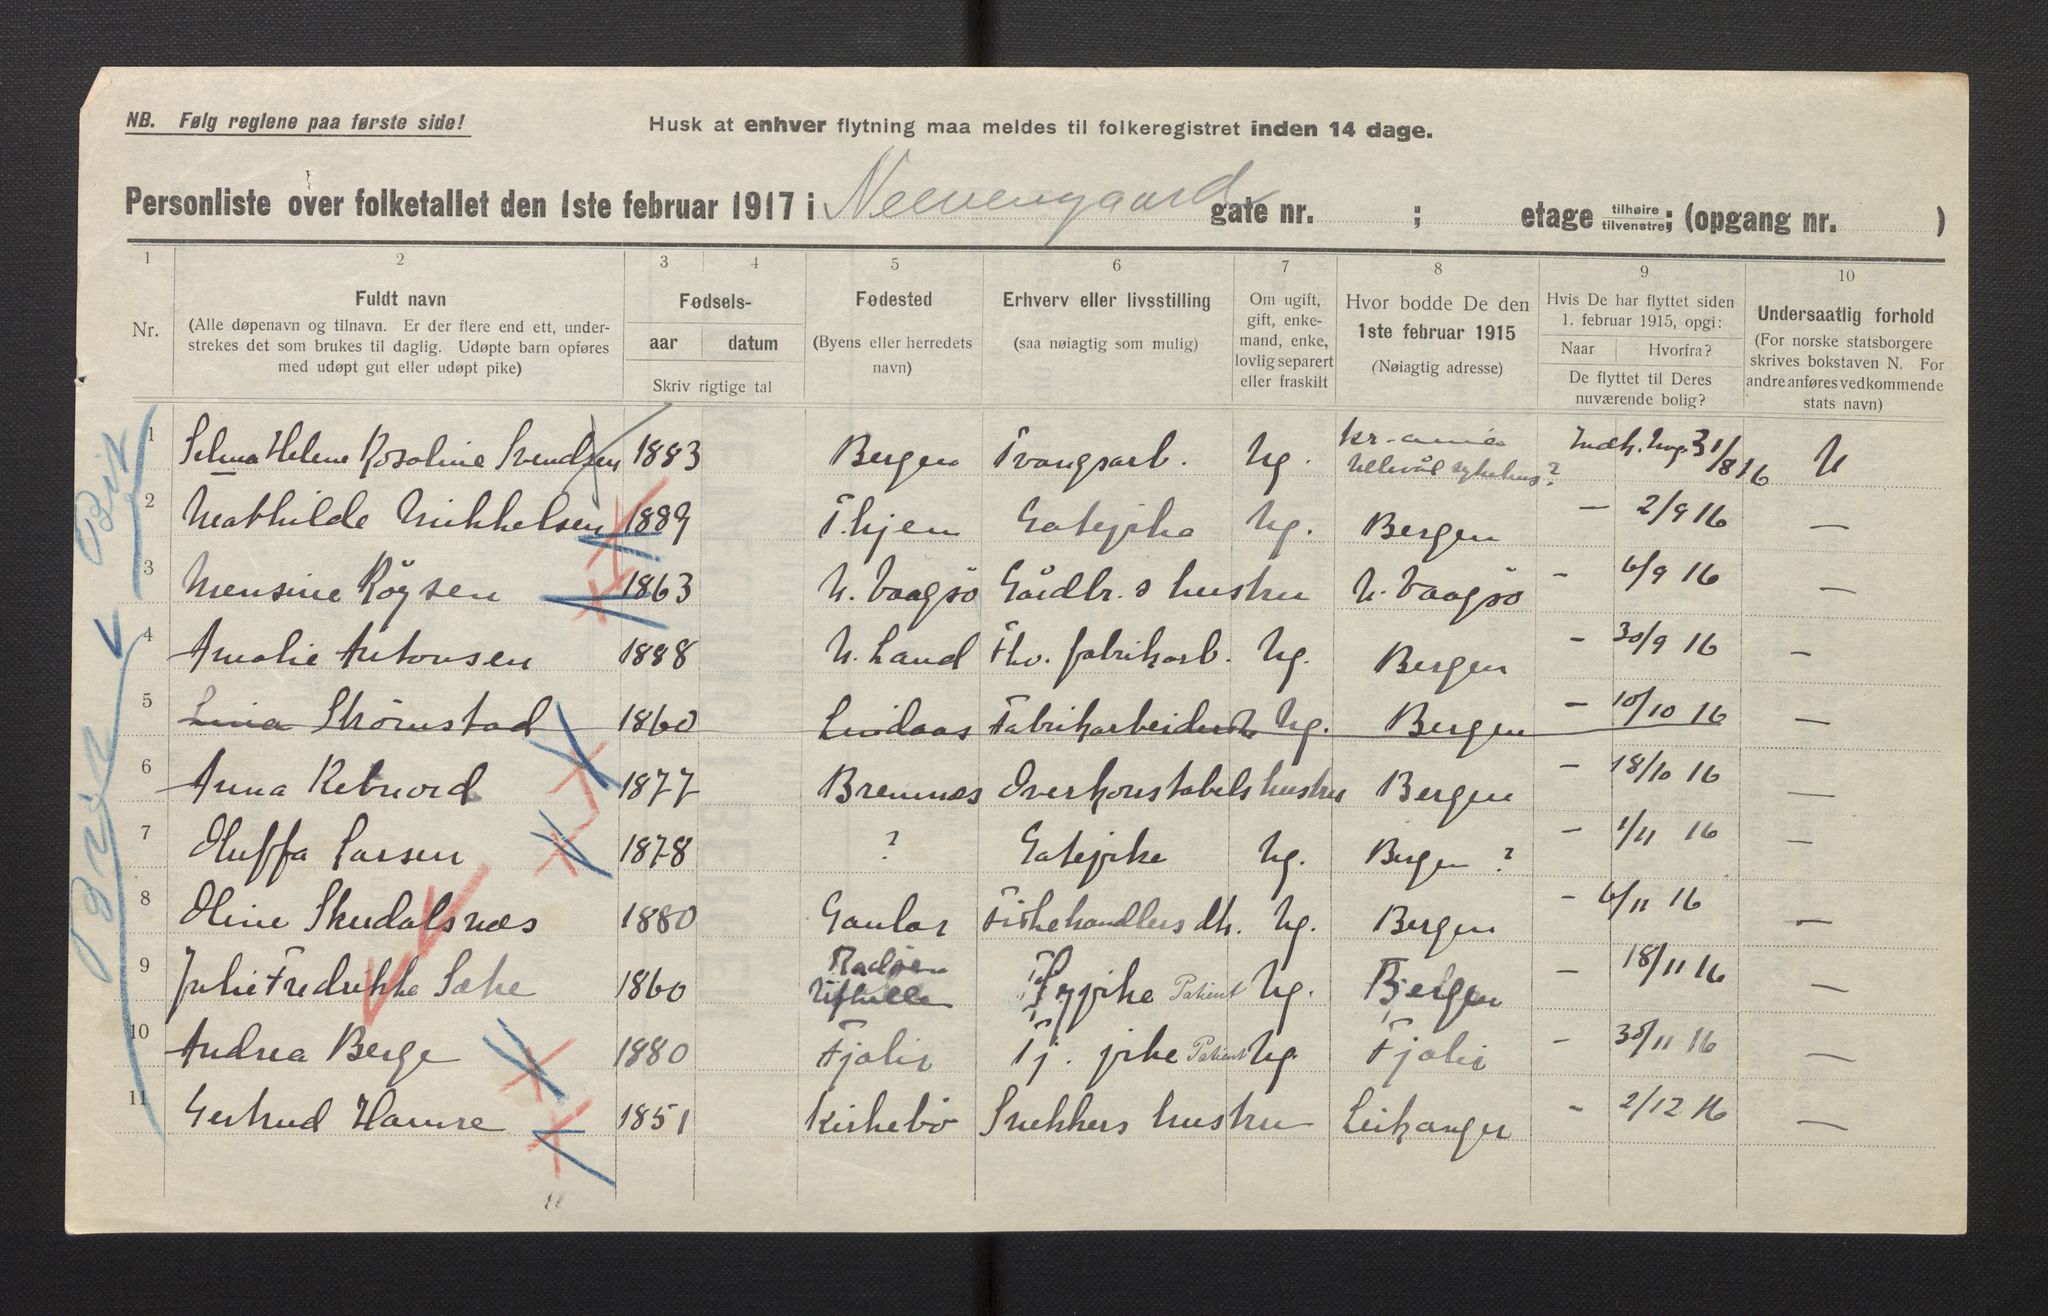 NB. Følg reglene paa første side!
Husk at enhver flytning maa meldes til folkeregistret inden 14 dage.
Personliste over folketallet den 1ste februar 1917 i Neevengaard gate nr. ; etage tilhøire tilvenstre; (opgang nr. )
1 2 3 4 5 6 7 8 9 10
Nr.
Fuldt navn
(Alle døpenavn og tilnavn. Er der flere end ett, under-
strekes det som brukes til daglig. Udøpte barn opføres
med udøpt gut eller udøpt pike)
Fødsels-
aar datum
Skriv rigtige tal
Fødested
(Byens eller herredets
navn)
Erhverv eller livsstilling
(saa nøiagtig som mulig)
Om ugift,
gift, enke-
mand, enke,
lovlig separert
eller fraskilt
Hvor bodde De den
1ste februar 1915
(Nøiagtig adresse)
Hvis De har flyttet siden
1. februar 1915, opgi:
Naar Hvorfra?
De flyttet til Deres
nuværende bolig?
Undersaatlig forhold
(For norske statsborgere
skrives bokstaven N. For
andre anføres vedkommende
stats navn)
1 Selma Helene Rosaline Svendsen 1883 Bergen Tvangsarb. Ug. Kr-ania Ullevål sykehus? Indk. 31/8 16 N
2 Mathilde Mikkelsen 1889 T.hjem Gatepike Ug. Bergen — 2/9 16 —
3 Mensine Röysen 1863 N. Vaagsö Gårdbr.s hustru N. Vaagsö – 6/9 16 —
4 Amalie Antonsen 1888 N. Land Fhv. fabrikarb. Ug. Bergen – 30/9 16 –
5 Lina Strömstad 1860 Lindaas Fabrikarbeiderske Ug. Bergen – 10/10 16 —
6 Anna Rebnord 1877 Bremnæs Overkonstabels hustru Bergen – 18/10 16 —
7 Oluffa Larsen 1878 ? Gatepike Ug. Bergen ? – 1/11 16 –
8 Oline Skudalsnæs 1880 Gaular Fiskehandlers dtr. Ug. Bergen – 6/11 16 —
9 Julie Fredrikke Sæke 1860 Radöen Patient Ug. Bergen – 18/11 16 —
10 Andrea Berge 1880 Fjaler Tj. pike Patient Ug. Fjaler – 30/11 16 —
11 Gertrud Hamre 1851 Kirkebö Snekkers hustru Leikanger – 2/12 16 —
11